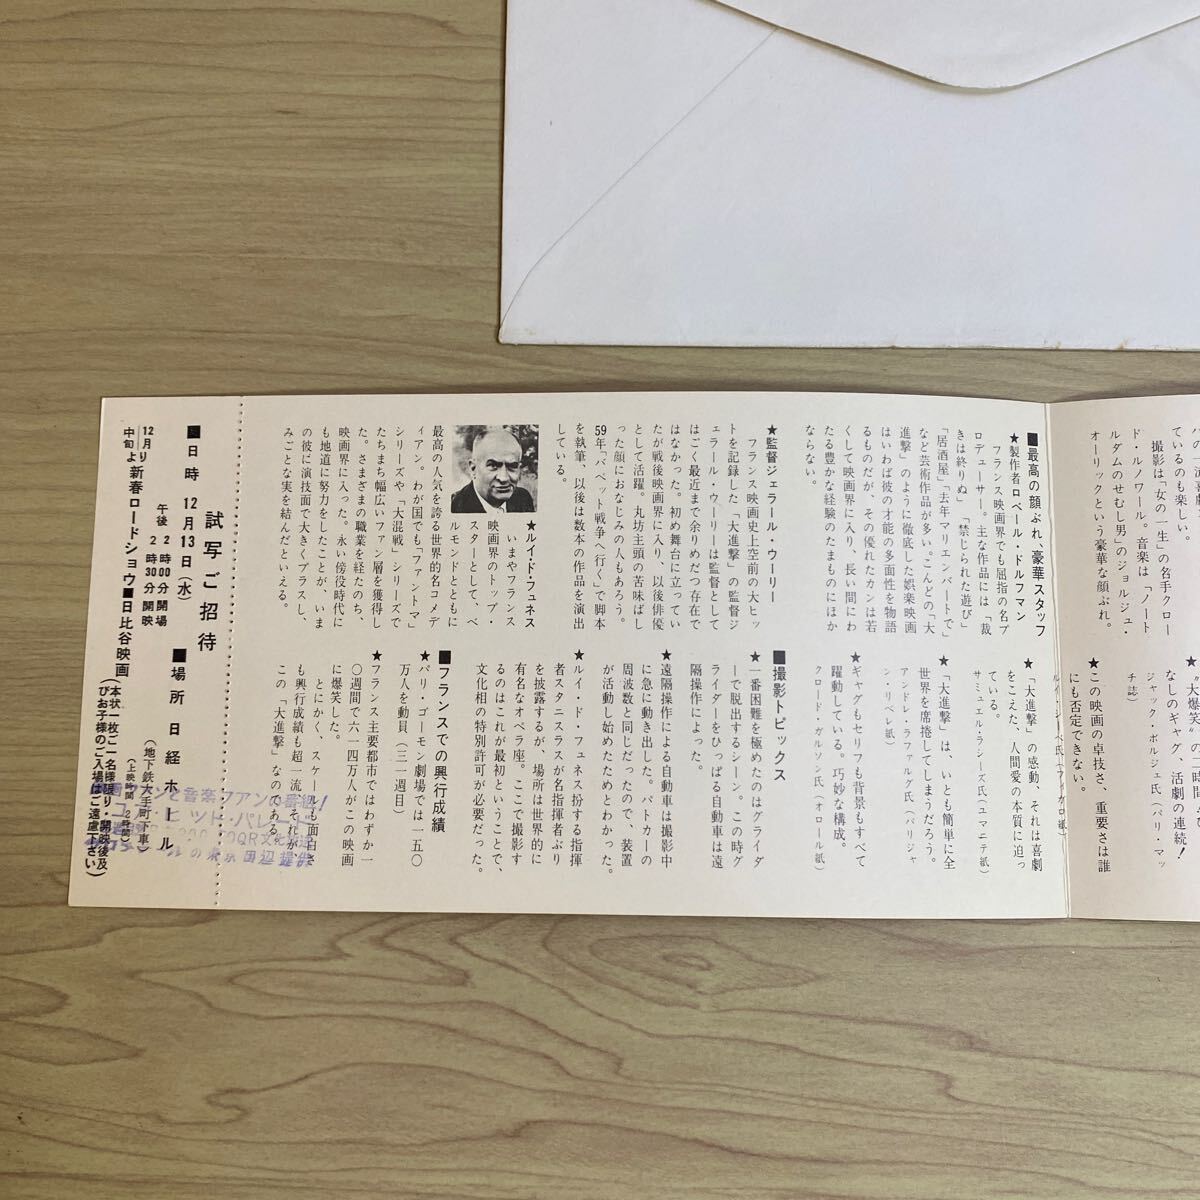 ているのも楽
撮影は「女の一生」の名手クロー
ド・ルノワール。音楽は「ノート
ルダムのせむし男」のジョルジュ・
オーリックという豪華な顔ぶれ。
なしのギャグ、活劇の連続!
ジャック・ボルジェ氏(パリ・マッ
チ誌)
★この映画の卓技さ、重要さは誰
にも否定できない。
■最高の顔ぶれ、豪華スタッフ
★製作者ロベール・ドルフマン
フランス映画界でも屈指の名プ
ロデューサー。主な作品には「裁
きは終りぬ」「禁じられた遊び」
「居酒屋」「去年マリエンバートで」
など芸術作品が多い。こんどの「大
進撃」のように徹底した娯楽映画
はいわば彼の才能の多面性を物語
るものだが、その優れたカンは若
くして映画界に入り、長い間にわ
たる豊かな経験のたまものにほか
ならない。
★監督ジェラール・ウーリー
フランス映画史上空前の大ヒッ
トを記録した「大進撃」の監督ジ
ェラール・ウーリーは監督として
はごく最近まで余りめだつ存在で
はなかった。初め舞台に立ってい
たが戦後映画界に入り、以後俳優
として活躍。丸坊主頭の苦味ばし
った顔におなじみの人もあろう。
59年「バベット戦争へ行く」で脚本
を執筆、以後は数本の作品を演出
している。
★ルイ・ド・フュネス
いまやフランス
映画界のトップ・
スターとして、ベ
ルモンドとともに
最高の人気を誇る世界的名コメデ
ィアン。わが国でも「ファントマ」
シリーズや「大混戦」シリーズで
たちまち幅広いファン層を獲得し
た。さまざまの職業を経たのち、
映画界に入った。永い傍役時代に
も地道に努力をしたことが、いま
の彼に演技面で大きくプラスし、
みごとな実を結んだといえる。
ルイ・シーベ氏(フィガロ紙)
★「大進撃」の感動、それは喜劇
をこえた、人間愛の本質に迫っ
ている。
サミュエル・ラシーズ氏(ユマニテ紙)
★「大進撃」は、いとも簡単に全
世界を席捲してしまうだろう。
アンドレ・ラファルグ氏(パリジャ
ン・リベレ紙)
★ギャグもセリフも背景もすべて
躍動している。巧妙な構成。
クロード・ガルソン氏(オロール紙)
■撮影トピックス
★一番困難を極めたのはグライダ
ーで脱出するシーン。この時グ
ライダーをひっぱる自動車は遠
隔操作によった。
★遠隔操作による自動車は撮影中
に急に動き出した。パトカーの
周波数と同じだったので、装置
が活動し始めたためとわかった。
★ルイ・ド・フュネス扮する指揮
者スタニスラスが名指揮者ぶり
を披露するが、場所は世界的に
有名なオペラ座。ここで撮影す
るのはこれが最初ということで、
文化相の特別許可が必要だった。
■フランスでの興行成績
★パリ・ゴーモン劇場では一五〇
万人を動員(三一週目)
★フランス主要都市ではわずか一
〇週間で六一四万人がこの映画
に爆笑した。
とにかく、スケールも面白さ
も興行成績も超一流、それが
この「大進撃」なのである。
試写ご招待
■日時 12月13日(水)
午後 2時00分開場
2時30分開映
■場所 日経ホール
(地下鉄大手町下車)
12月中旬より新春ロードショウ■日比谷映画
(本状一枚ご一名様限り・開映後及
びお子様のご入場はご遠慮下さい)